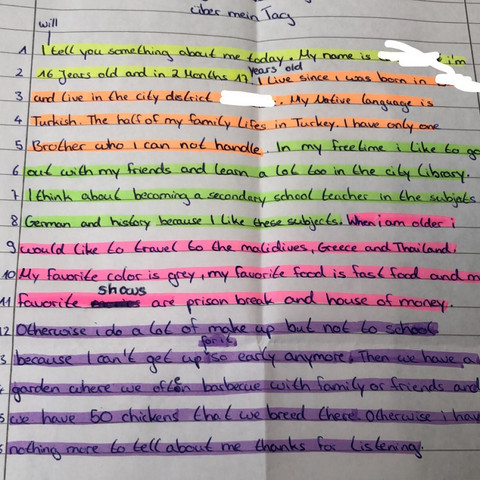 über mein Tag
will
1 I tell you something about me today. My name is i'm
years old
2 16 Years old and in 2 Months 17 I Live since I was born in
3 and live in the city district . My Native language is
4 Turkish. The half of my family lifes in Turkey. I have only one
5 Brother who I can not handle. In my freetime i like to go
6 out with my friends and learn a lot too in the city library.
7 I think about becoming a secondary school teacher in the subjets
8 German and history because I like these subjects. When i am older i
9 would like to travel to the malidives, Greece and Thailand.
10 My favorite color is grey, my favorite food is fast food and m
shows
11 favorite are prison break and house of money.
12 Otherwise i do a lot of make up but not to school
for it
3 because I can't get up so early anymore. Then we have a
garden where we often barbecue with family or friends and
we have 50 chickens that we breed there. Otherwise i hav
nothing more to tell about me thanks for listening.